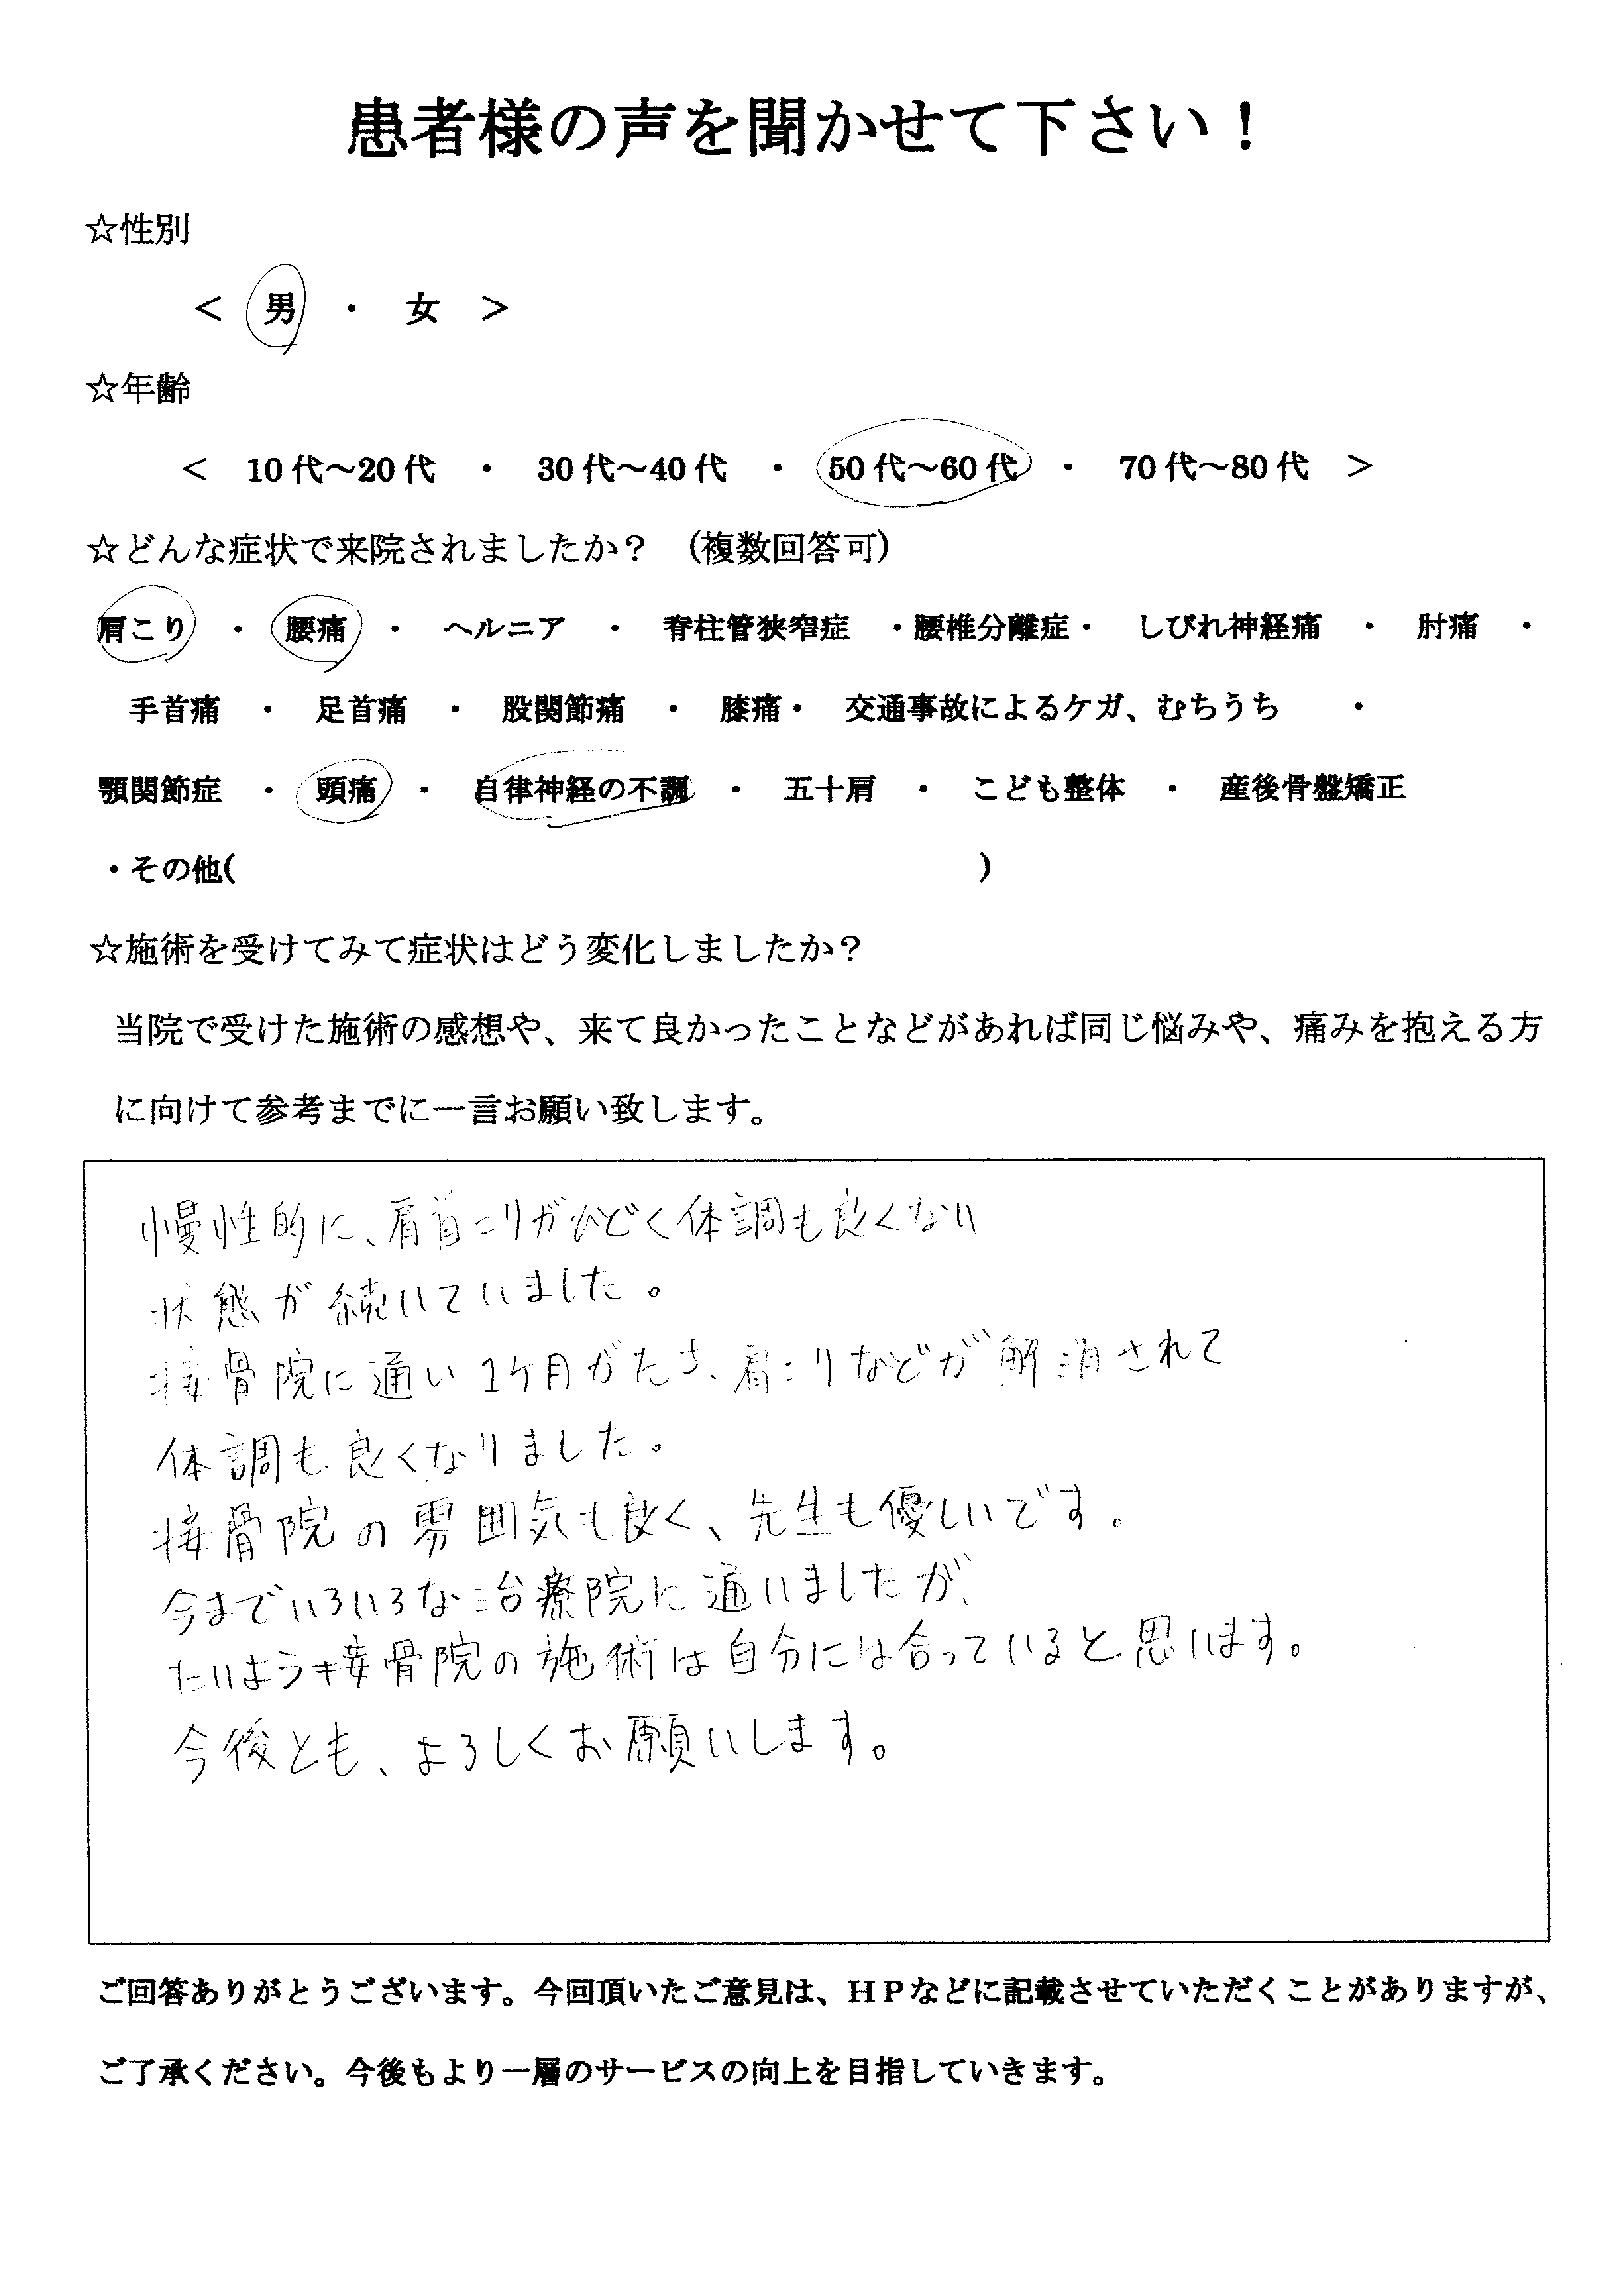 患者様の声を聞かせて下さい！
☆性別
＜ 男 ・ 女 ＞
☆年齢
＜ 10代～20代 ・ 30代～40代 ・ 50代～60代 ・ 70代～80代 ＞
☆どんな症状で来院されましたか？ (複数回答可)
肩こり ・ 腰痛 ・ ヘルニア ・ 脊柱管狭窄症 ・腰椎分離症・ しびれ神経痛 ・ 肘痛 ・
手首痛 ・ 足首痛 ・ 股関節痛 ・ 膝痛・ 交通事故によるケガ、むちうち ・
顎関節症 ・ 頭痛 ・ 自律神経の不調 ・ 五十肩 ・ こども整体 ・ 産後骨盤矯正
・その他( )
☆施術を受けてみて症状はどう変化しましたか？
当院で受けた施術の感想や、来て良かったことなどがあれば同じ悩みや、痛みを抱える方
に向けて参考までに一言お願い致します。
慢性的に、肩首こりがひどく体調も良くない
状態が続いていました。
接骨院に通い1ケ月がたち、肩こりなどが解消されて
体調も良くなりました。
接骨院の雰囲気も良く、先生も優しいです。
今までいろいろな治療院に通いましたが、
たいよう接骨院の施術は自分には合っていると思います。
今後とも、よろしくお願いします。
ご回答ありがとうございます。今回頂いたご意見は、ＨＰなどに記載させていただくことがありますが、
ご了承ください。今後もより一層のサービスの向上を目指していきます。